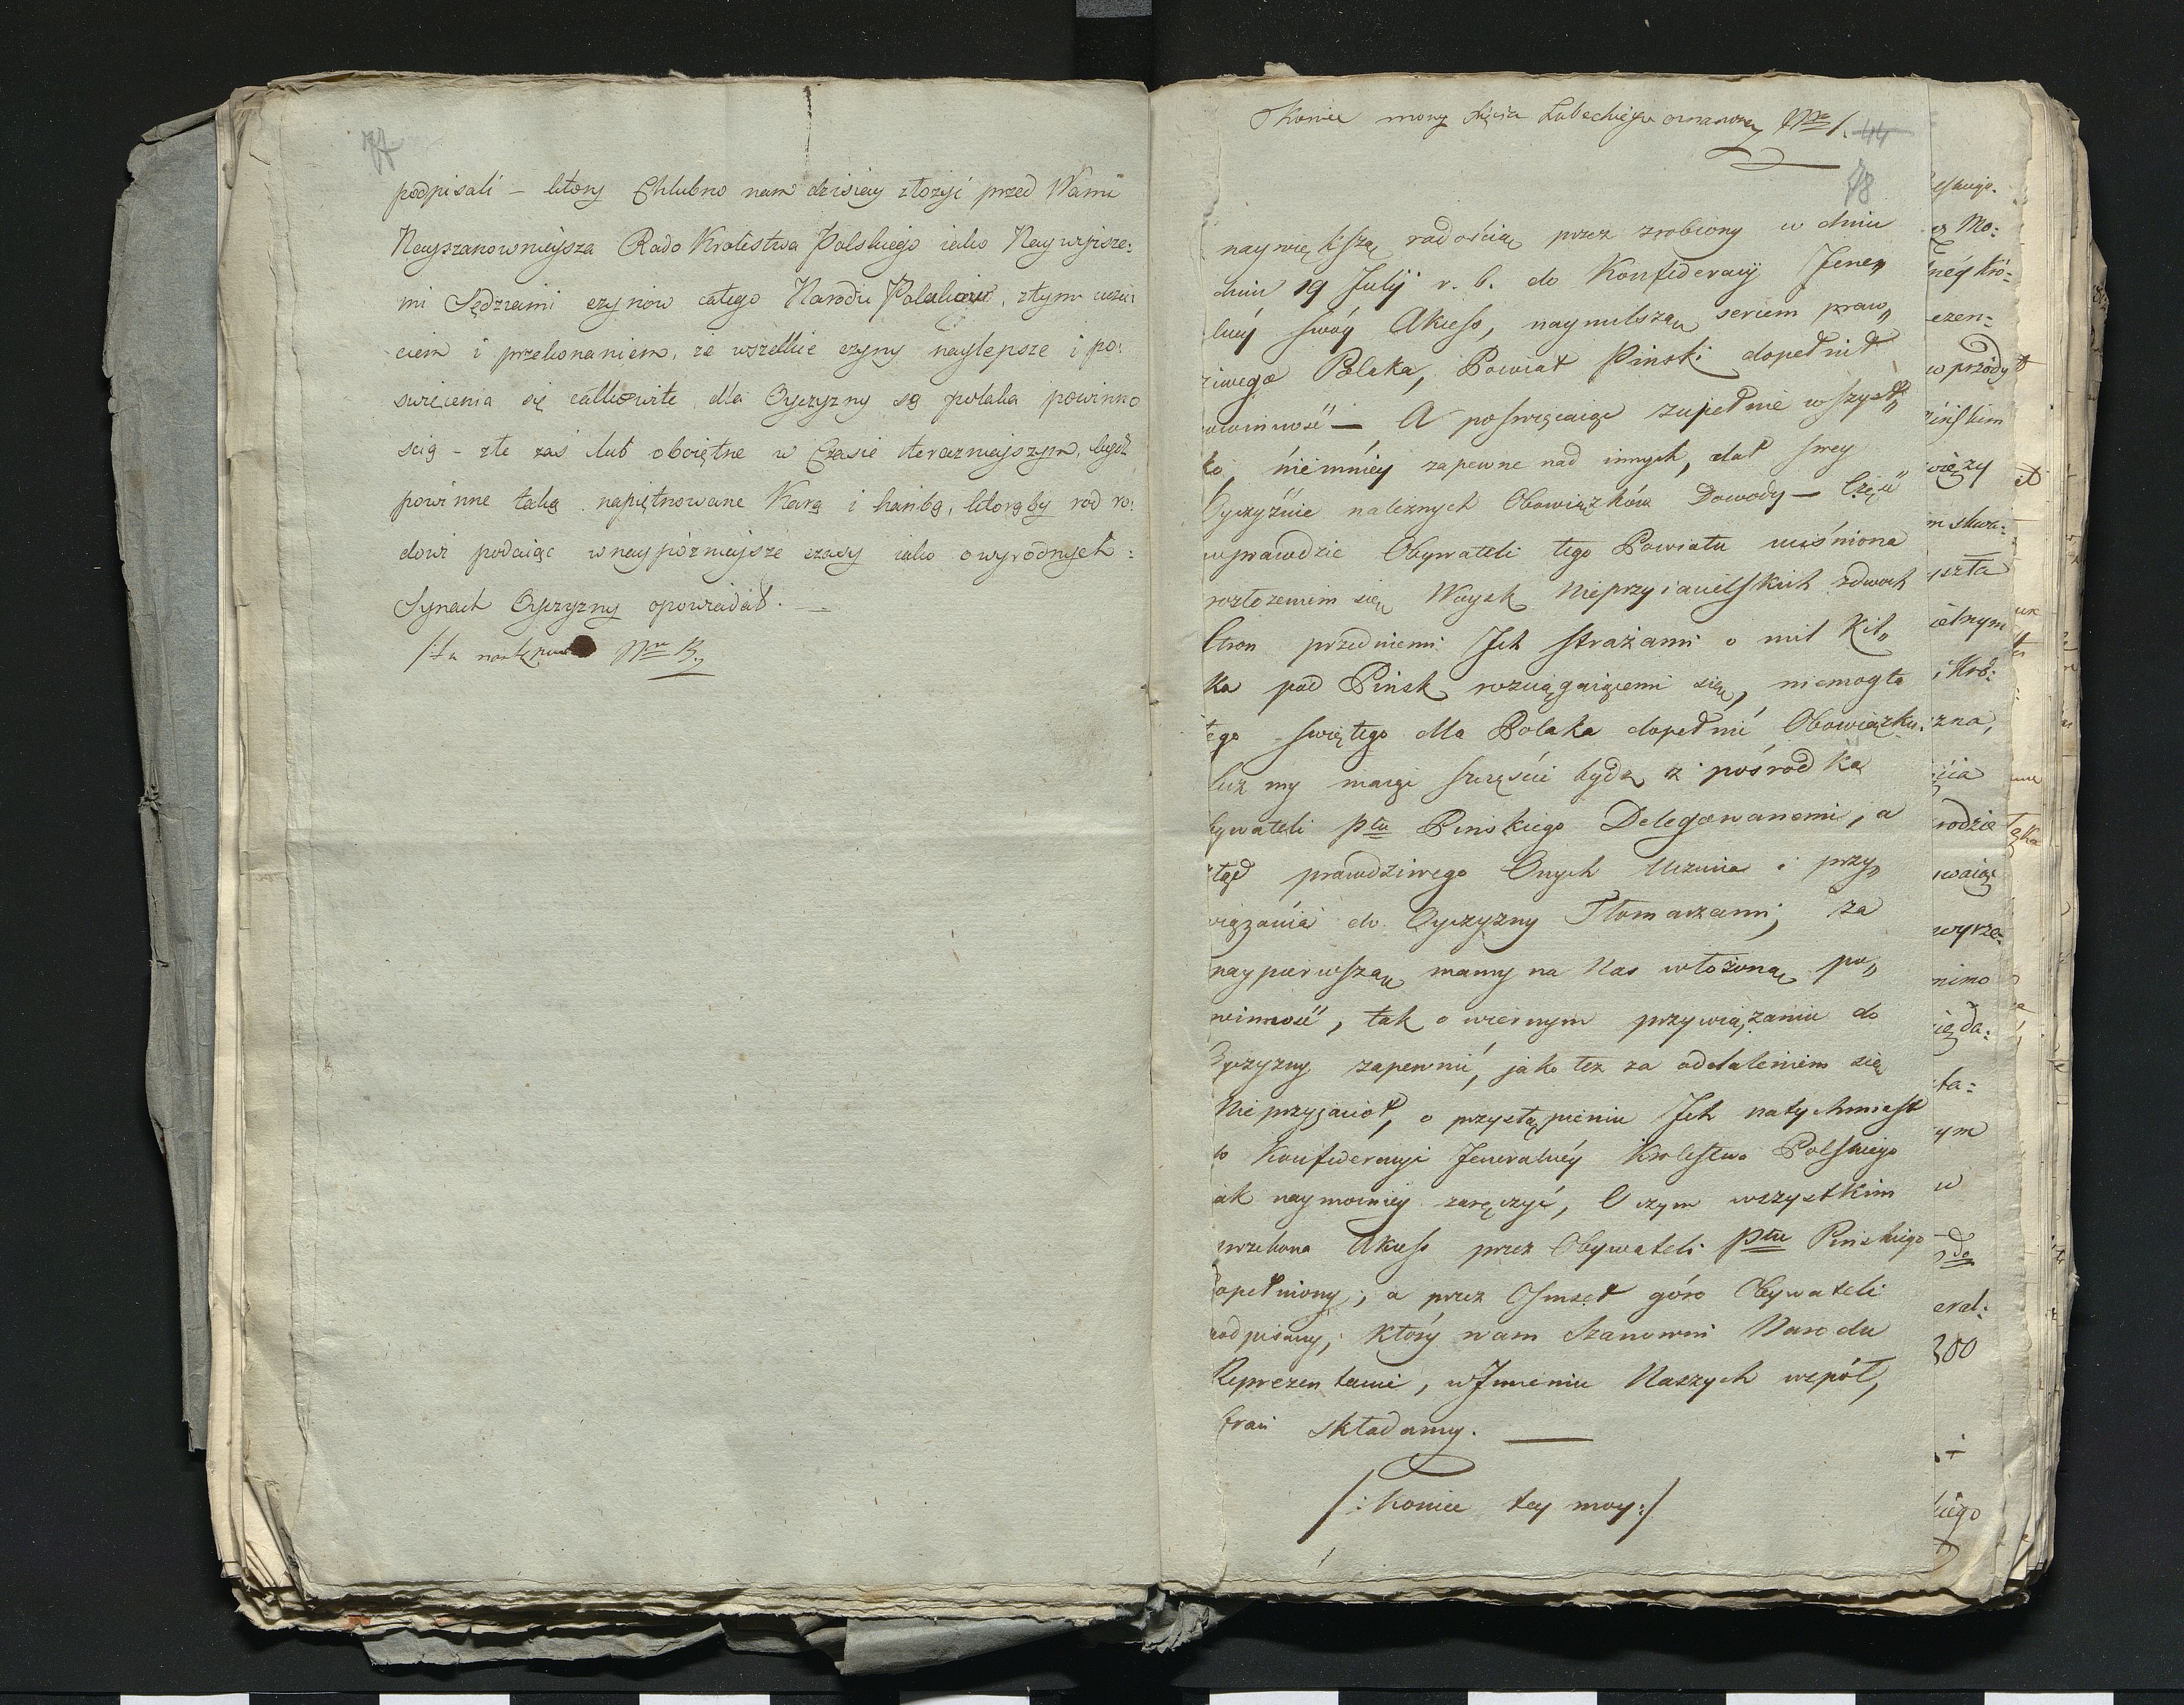 77
podpisali – ktory Chlubno nam dzisiay złożyć przed Wami
Nayszanownieysza Rado Krolestwa Polskiego iako Naywyższe:
mi Sędziami czynow całego Narodu Polakow, ztym uczu:
ciem i przekonaniem, że wszelkie czyny naylepsze i po:
święcenia się całkowite dla Oyczyzny są polaka powinno
scią – złe zaś lub oboiętne w Czasie teraznieyszym, bydź
powinne taką napiętnowane Karą i hańbą, ktorąby rod ro:
dowi podaiąc w naypóznieysze czasy iako o wyrodnych:
Synach Oyczyzny opowiadał. —
/:tu następuie Nro B.
Koniec mowy Xięcia Lubeckiego oznaczoney Nro 1. 44
78
naywiększą radością przez zrobiony w dniu
dniu 19 Julij r. b. do Konfederacij Jene„
lney swóy Akcess, naymilszą sercem praw„
ziwego Polaka, Powiat Pinski dopełnił
owinność — A poswięcaiąc zupełnie wszyst„
ko, niemniey zapewne nad innych, dał swey
Oyczyźnie należnych Obowiązków Dowody — Część
wprawdzie Obywateli tego Powiatu uciśniona
rozłożeniem się Woysk Nieprzyiacielskich zdwoch
Stron przedniemi Ich strażami o mil Kil„
ka pod Pińsk rozciągaiącemi się, niemogła
tego swiętego dla Polaka dopełnić Obowiązku.
lecz my maiąc szczęście bydź z pośrodka
bywateli Ptu Pinskiego Delegowanemi, a
ztąd prawdziwego Onych Uczucia i przy„
wiązania do Oyczyzny Tłomaczami; za
naypierwszą mamy na Nas włożoną po„
winność, tak o wiernym przywiązaniu do
Oyczyzny zapewnić, jako też za oddaleniem się
Nieprzyjaciół, o przystąpieniu Ich natychmiast
o Konfederacyi Jeneralney Krolestwa Polskiego
ak naymocniey zaręczyć, O czym wszystkim
przekona Akcess przez Obywateli Ptu Pinskiego
opełniony; a przez Osmset góro Obywateli
podpisany; który wam Szanowni Narodu
Reprezentanci, w Imieniu Naszych współ,
braci składamy. —
/: Koniec tey mowy:/